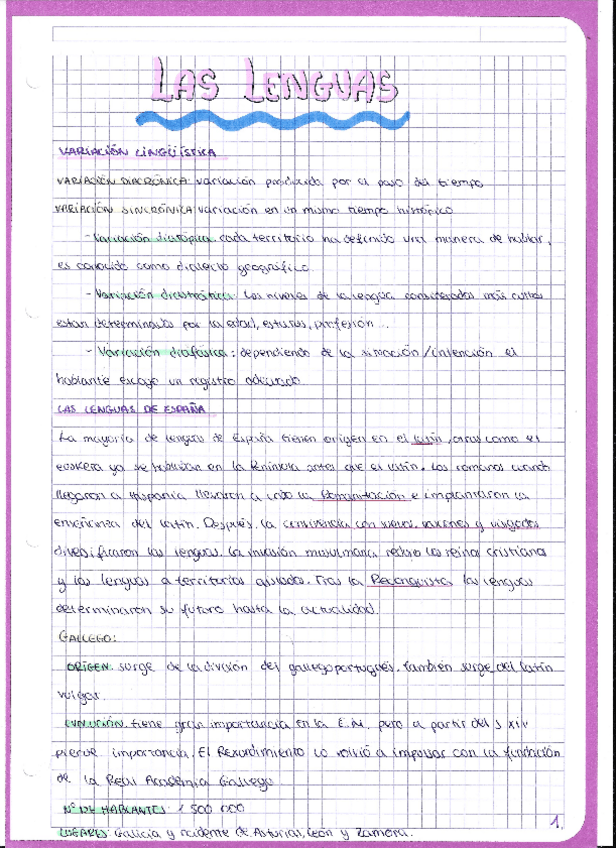 LAS LENGUAS
VARIACIÓN LINGÜÍSTICA
VARIACIÓN DIACRÓNICA: variación producida por el paso del tiempo
VARIACIÓN SINCRÓNICA: variación en un mismo tiempo histórico
- Variación diatópica: cada territorio ha definido una manera de hablar,
es conocido como dialecto geográfico.
- Variación diastrática: Los niveles de la lengua considerados más cultos
estan determinados por la edad, estatus, profesión...
- Variación diafásica: dependiendo de la situación/intención el
hablante escoge un registro adecuado
LAS LENGUAS DE ESPAÑA
La mayoría de lenguas de España tienen origen en el latín, otras como el
euskera ya se hablaban en la Península antes que el latín. Los romanos cuando
llegaron a Hispania llevaron a cabo la Romanización e implantaron la
enseñanza del latín. Después, la convivencia con suevos, y visigodos
diversificaron las lenguas. La invasión musulmana redujo los reinos cristianos
y las lenguas a territorios aislados. Tras la Reconquista las lenguas
determinaron su futuro hasta la actualidad.
GALLEGO:
ORIGEN: surge de la división del gallegoportugués. También surge del latín
vulgar.
EVOLUCIÓN: tiene gran importancia en la E.M, pero a partir del s XIV
pierde importancia. El Rexurdimiento lo volvió a impulsar con la fundación
de la Real Academia Gallega
Nº DE HABLANTES: 1 500 000
LUGARES: Galicia y occidente de Asturias, León y Zamora.
1.